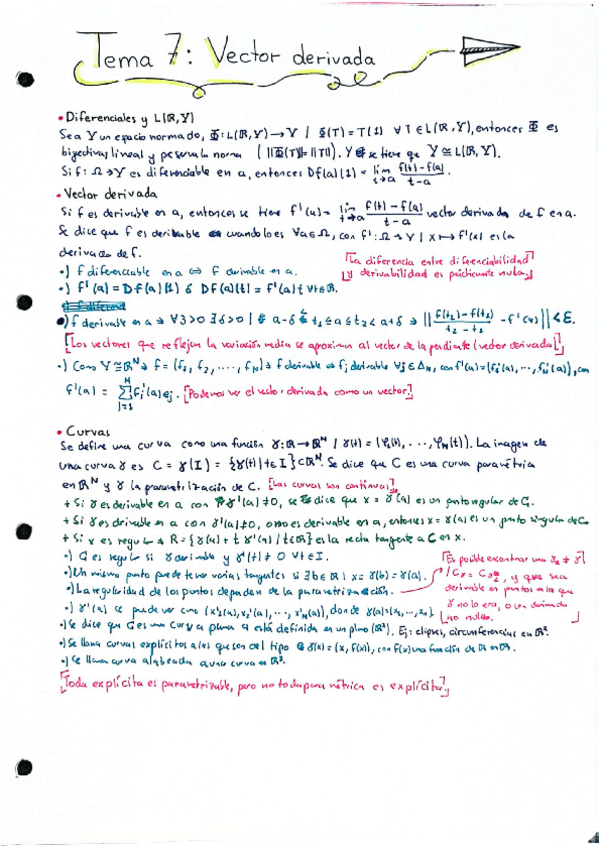 Tema 7: Vector derivada
• Diferenciales y L(R,Y)
Sea Y un espacio normado, Φ: L(R,Y) → Y / Φ(T) = T(1) ∀T∈L(R,Y), entonces Φ es
biyectiva, lineal y preserva la norma (||Φ(T)|| = ||T||). Y se tiene que Y ≅ L(R,Y).
Si f: Ω→Y es diferenciable en a, entonces Df(a)(1) = lim t→a f(t)-f(a) / t-a.
• Vector derivada
Si f es derivable en a, entonces se tiene f'(a) = lim t→a f(t)-f(a) / t-a vector derivada de f en a.
Se dice que f es derivable cuando lo es ∀a∈Ω, con f': Ω→Y | x↦f'(x) es la
derivada de f.
[La diferencia entre diferenciabilidad
y derivabilidad es prácticamente nula.]
•) f diferenciable en a ⇔ f derivable en a.
•) f'(a) = Df(a)(1) ó Df(a)(t) = f'(a)t ∀t∈R.
•) f derivable en a ⇒ ∀ε>0 ∃δ>0 | a-δ<t₁≤a≤t₂<a+δ ⇒ ||f(t₂)-f(t₁) / t₂-t₁ - f'(a)|| < ε.
[Los vectores que reflejan la variación media se aproximan al vector de la pendiente (vector derivada)]
•) Como Y ≅ Rᴺ ⇒ f = (f₁, f₂, ..., f_N) ⇒ f derivable ⇔ fⱼ derivable ∀j∈Δ_N, con f'(a) = (f₁'(a), ..., f_N'(a)), con
f'(a) = Σ_{j=1}^N fⱼ'(a)eⱼ. [Podemos ver el vector derivada como un vector]
• Curvas
Se define una curva como una función γ: R→Rᴺ / γ(t) = (γ₁(t), ..., γ_N(t)). La imagen de
una curva γ es C = γ(I) = {γ(t) | t∈I} ⊂ Rᴺ. Se dice que C es una curva paramétrica
en Rᴺ y γ la parametrización de C. [Las curvas son continuas]
+ Si γ es derivable en a con γ'(a) ≠ 0, se dice que x = γ(a) es un punto regular de C.
+ Si γ es derivable en a con γ'(a) = 0, o no es derivable en a, entonces x = γ(a) es un punto singular de C
+ Si x es regular ⇒ R = {γ(a) + t γ'(a) / t∈R} es la recta tangente a C en x.
•) C es regular si γ derivable y γ'(t) ≠ 0 ∀t∈I.
•) Un mismo punto puede tener varias tangentes si ∃b∈R | x = γ(b) = γ(a).
•) La regularidad de los puntos dependen de la parametrización.
[Es posible encontrar una γ₂ ≠ γ
y que sea
derivable en puntos en la que
γ no lo era, o con derivada
no nula.]
•) γ'(a) se puede ver como (x₁'(a), x₂'(a), ..., x_N'(a)), donde γ(a) = (x₁, ..., x_N)
•) Se dice que C es una curva plana si está definida en un plano (R²). Ej: elipses, circunferencias en R².
•) Se llama curvas explícitas a las que son del tipo γ(x) = (x, f(x)), con f(x) una función de R en R.
•) Se llama curva alabeada a una curva en R³.
[Toda explícita es parametrizable, pero no toda paramétrica es explícita]